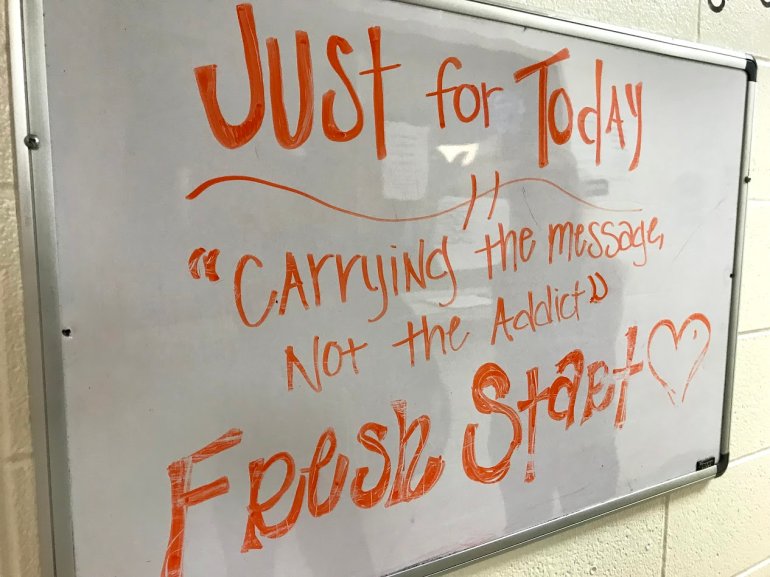 Just for Today
"Carrying the message,
Not the Addict"
Fresh Start